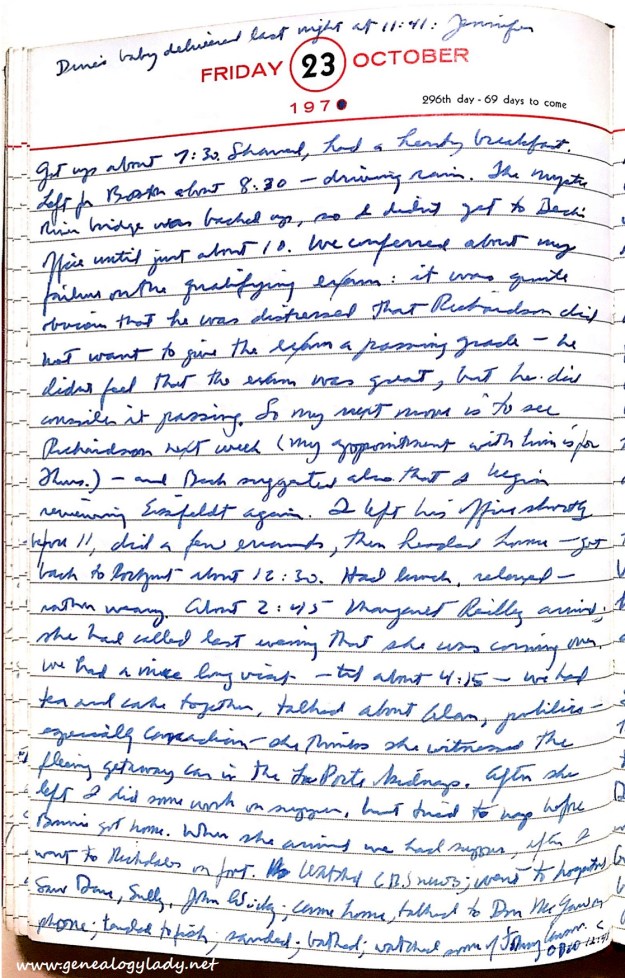 baby delivered last night at 11:41: Jennifer
FRIDAY 23 OCTOBER
1970
296th day - 69 days to come
Got up about 7:30. Shaved, had a hearty breakfast.
Left for Boston about 8:30 – driving rain. The Mystic
River bridge was backed up, so I didn't get to Beck's
office until just about 10. We conferred about my
failure on the qualifying exam: it was quite
obvious that he was distressed that Richardson did
not want to give the exam a passing grade – he
didn't feel that the exam was great, but he did
consider it passing. So my next move is to see
Richardson next week (my appointment with him is for
Thurs.) – and Beck suggested also that I begin
reviewing Eissfeldt again. I left his office shortly
before 11, did a few errands, then headed home – got
back to Rockport about 12:30. Had lunch, relaxed –
rather weary. About 2:45 Margaret Reilley arrived;
she had called last evening that she was coming over.
We had a nice long visit – til about 4:15 – we had
tea and cake together, talked about Alan, politics –
especially Canadian – she thinks she witnessed the
fleeing getaway car in the LaPorte kidnap. After she
left I did some work on supper, but tried to nap before
Bonnie got home. When she arrived we had supper, after I
went to Nicholas on foot. Watched CBS news; went to hospital,
saw Sally, John; came home, talked to Don McGaw on
phone; tended to fish; bathed; watched some of Johnny Carson.
12:45
www.genealogylady.net